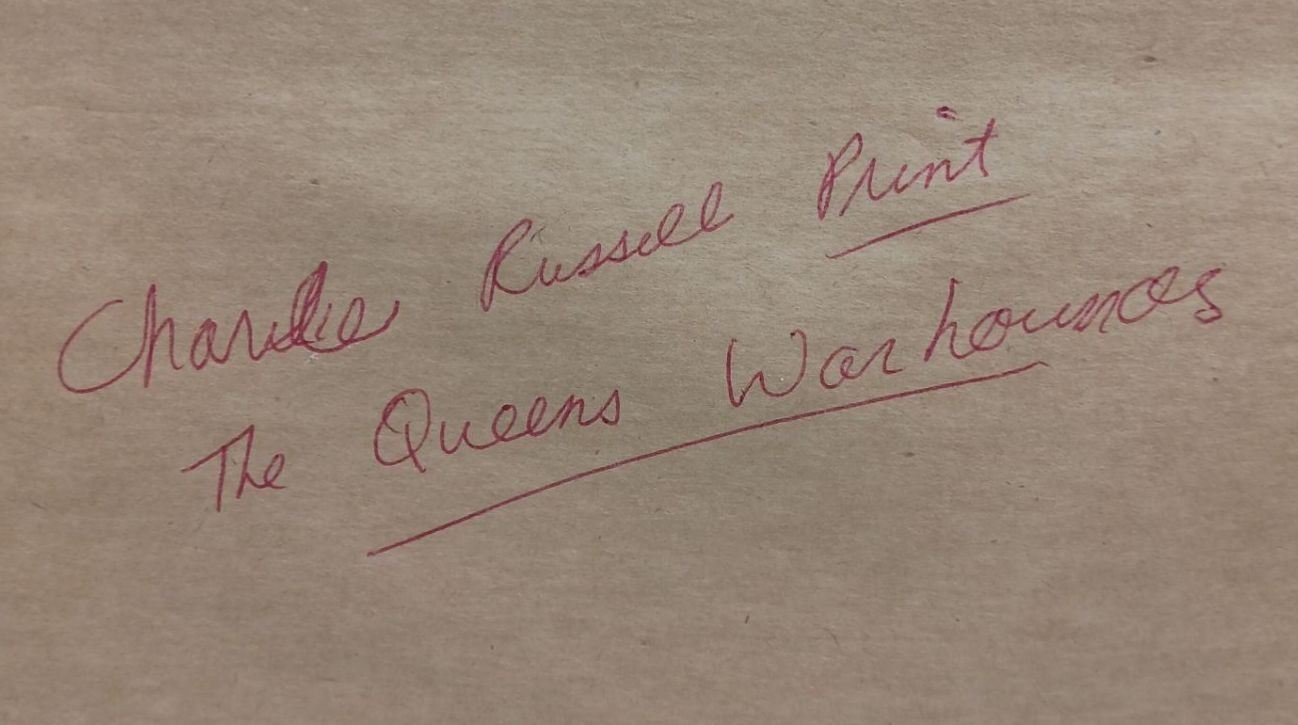 Charlie Russell Print
The Queens Warhounds